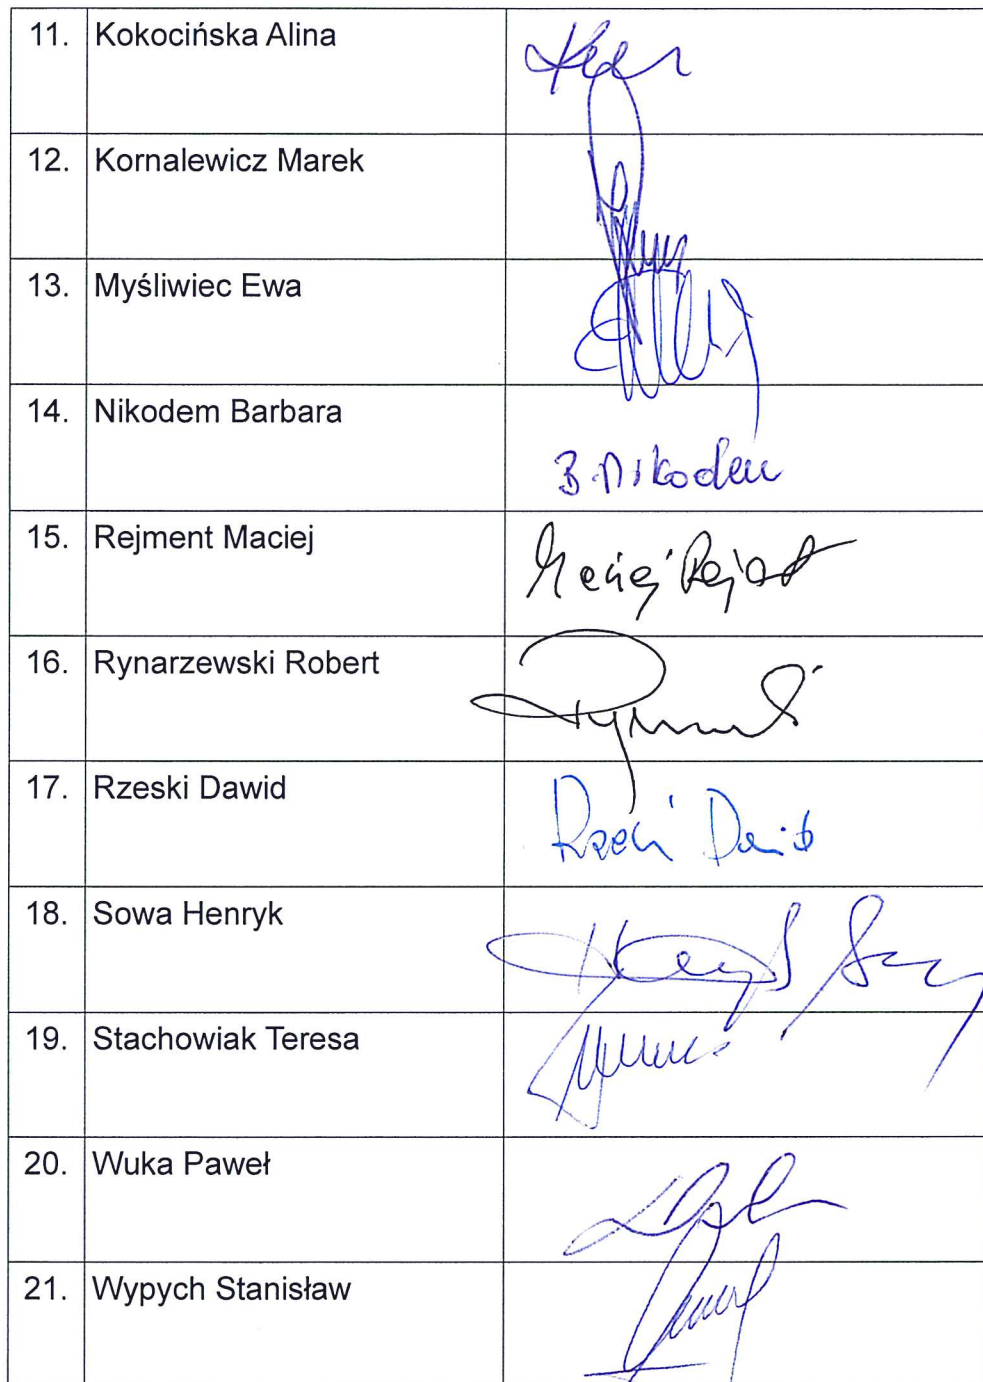 11. Kokocińska Alina
12. Kornalewicz Marek
13. Myśliwiec Ewa
14. Nikodem Barbara
B. Nikodem
15. Rejment Maciej
Maciej
16. Rynarzewski Robert
17. Rzeski Dawid
Dawid
18. Sowa Henryk
19. Stachowiak Teresa
20. Wuka Paweł
21. Wypych Stanisław